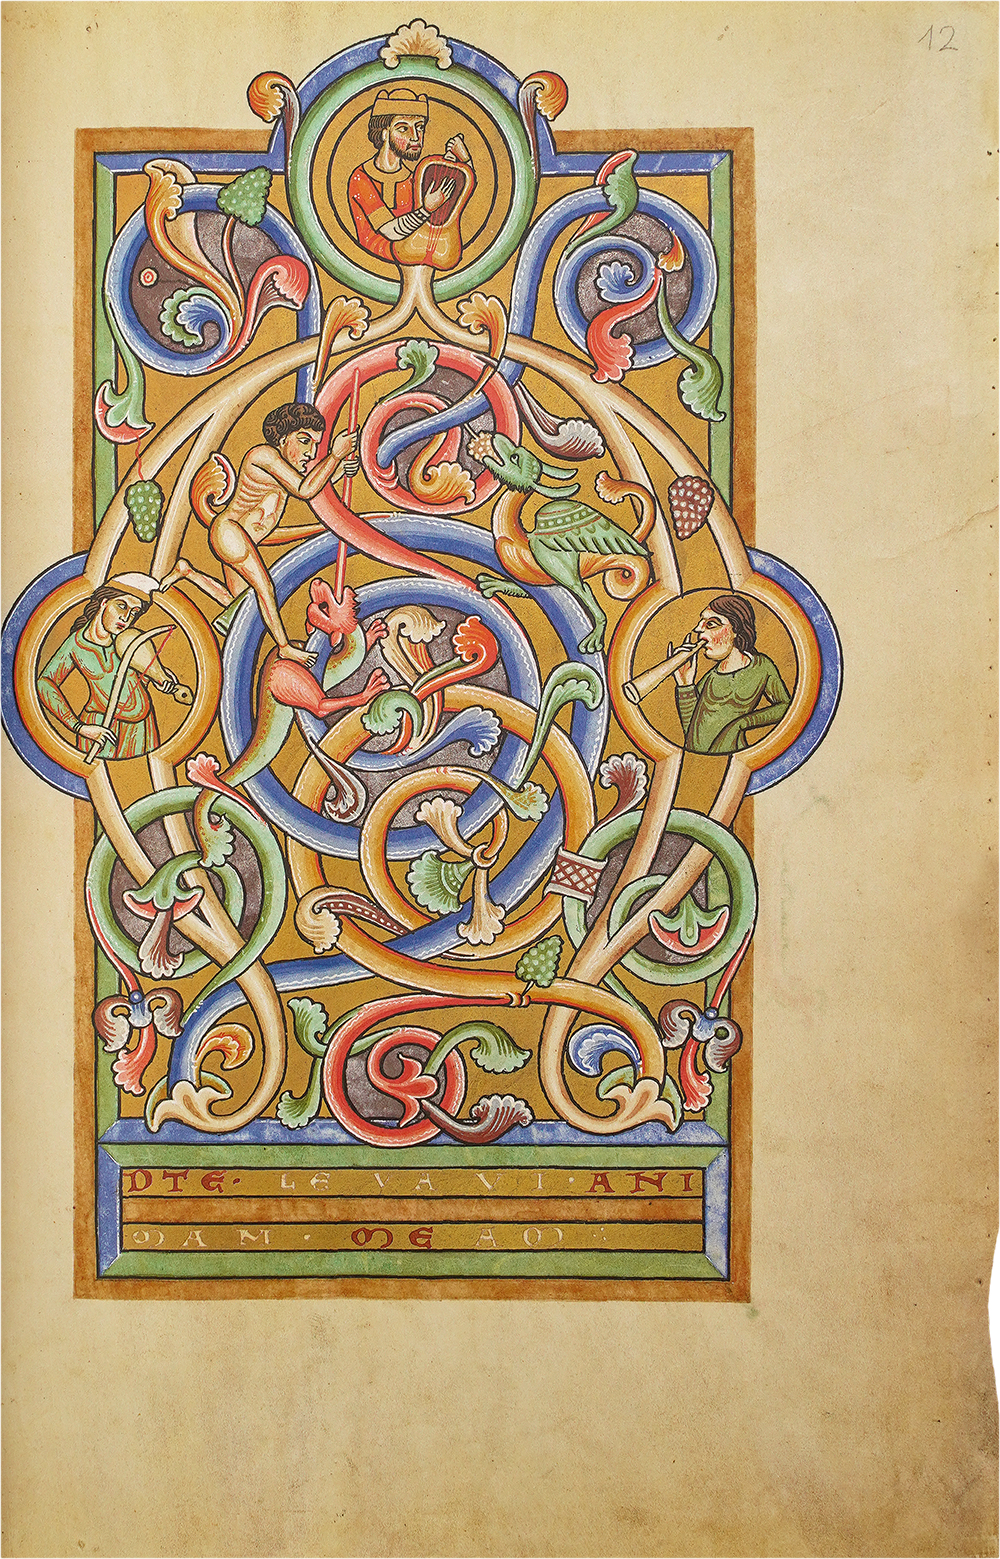 12
A
DTE· LEVAVI·ANI
MAM · MEAM: